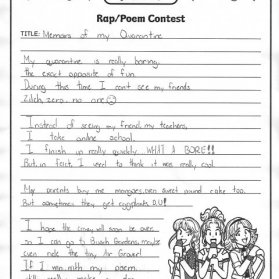 Rap/Poem Contest
TITLE: Memoirs of my Quarantine
My quarantine is really boring,
the exact opposite of fun.
During this time I can't see my friends.
Zilch, zero, no one
Instead of seeing my friends, my teachers,
I take online school.
I finish up really quickly. WHAT A BORE!!
But, in fact, I used to think it was really cool.
My parents buy me mangoes, even sweet round cake too.
But sometimes they get eggplants. EW!
I hope the crisis will soon be over
so I can go to Busch Gardens, maybe
even ride the tiny Air Grover!
If I win with my poem